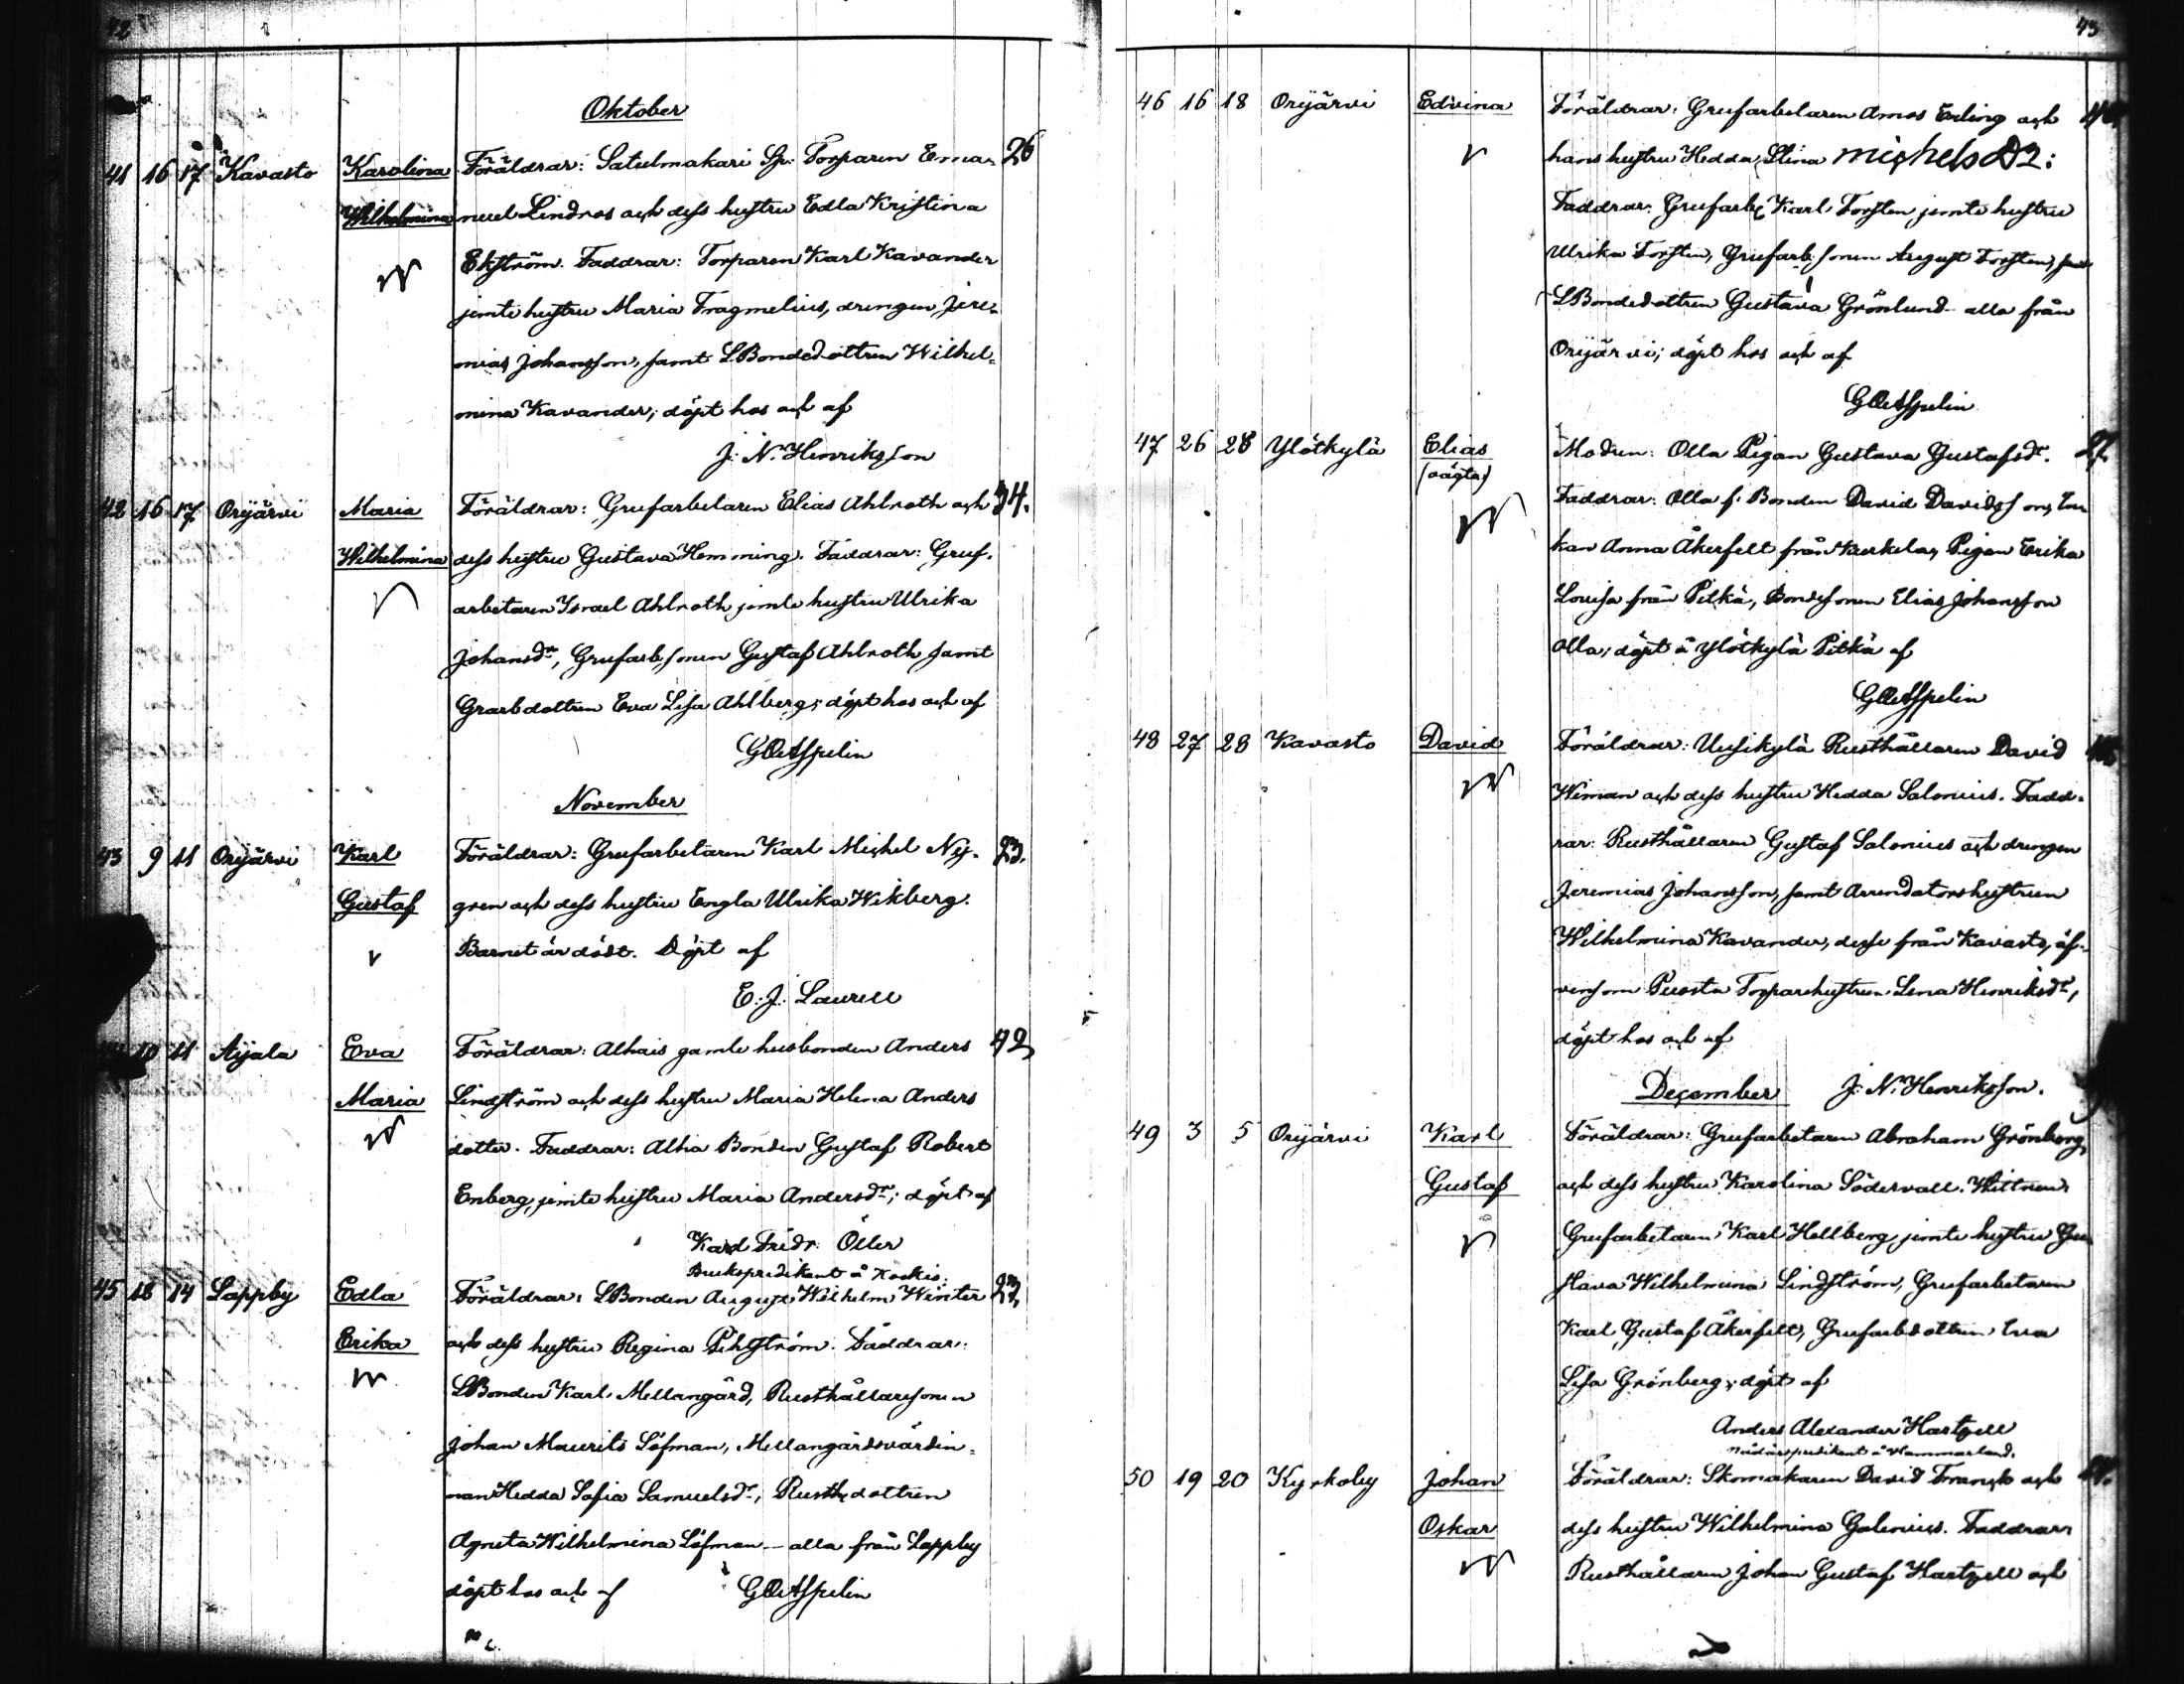 42
Oktober
41 16 17 Kavasto Karolina Föräldrar: Satulmakari Sp. Torparen Ema- 26
Wilhelmina nuel Lindros och dess hustru Edla Kristina
Ekström. Faddrar: Torparen Karl Kavander
jemte hustru Maria Fragmelius, drengen Jere-
mias Johansson, samt LBondedottren Wilhel-
mina Kavander; döpt hos och af
J. N. Henriksson
42 16 17 Orijärvi Maria Föräldrar: Grufarbetaren Elias Ahlroth och 34.
Wilhelmina dess hustru Gustava Hemming. Faddrar: Gruf-
arbetaren Israel Ahlroth jemte hustru Ulrika
Johansdr, Grufarb. sonen Gustaf Ahlroth samt
Grarbdottren Eva Lisa Ahlberg; döpt hos och af
November
43 9 11 Orijärvi Karl Föräldrar: Grufarbetaren Karl Michel Ny- 23.
Gustaf gren och dess hustru Engla Ulrika Wikberg.
Barnet är dödt. Döpt af
E. J. Laurell
10 11 Aijala Eva Föräldrar: Alhais gamle husbonden Anders 42
Maria Lindström och dess hustru Maria Helena Anders
dotter. Faddrar: Alha Bonden Gustaf Robert
Enberg, jemte hustru Maria Andersdr; döpt af
Karl Fridr. Öller
Brukspredikant å Koskis.
45 18 14 Lappby Edla Föräldrar: LBonden August Wilhelm Winter 23
Erika och dess hustru Regina Pihlström. Faddrar:
LBonden Karl Mellangård, Rusthållaresonen
Johan Maurits Löfman, Mellangårdsvärdin-
nan Hedda Sofia Samuelsdr, Rusth. dottren
Agneta Wilhelmina Löfman — alla från Lappby
döpt hos och af
43
46 16 18 Orijärvi Edvina Föräldrar: Grufarbetaren Amos Erling och
hans hustru Hedda Stina Michelsd2:
Faddrar: Grufarb. Karl Forsten jemte hustru
Ulrika Forsten, Grufarb. sonen August Forsten, samt
LBondedottren Gustava Grönlund - alla från
Orijärvi; döpt hos och af
47 26 28 Ylötkylä Elias Modren: Olla Pigan Gustava Gustafsdr. 27.
(oägta) Faddrar: Olla f. Bonden David Davidsson, En-
kan Anna Åkerfelt från Kurkela, Pigan Erika
Lovisa från Pitkä, Bondesonen Elias Johansson
Olla; döpt å Ylötkylä Pitkä af
48 27 28 Kavasto David Föräldrar: Uusikylä Rusthållaren David
Wiman och dess hustru Hedda Salonius. Fadd-
rar: Rusthållaren Gustaf Salonius och drengen
Jeremias Johansson, samt Arrendatorshustrun
Wilhelmina Kavander, desse från Kavasto, äf-
vensom Puosta Torparehustrun Lena Henriksdr,
döpt hos och af
December J. N. Henriksson.
49 3 5 Orijärvi Karl Föräldrar: Grufarbetaren Abraham Grönberg
Gustaf och dess hustru Karolina Södervall. Wittnen:
Grufarbetaren Karl Hellberg jemte hustru Gu-
stava Wilhelmina Lindström, Grufarbetaren
Karl Gustaf Åkerfelt, Grufarbdottren Eva
Lisa Grönberg; döpt af
Anders Alexander Hartzell
Nödårspredikant å Hammarland.
50 19 20 Kyrkoby Johan Föräldrar: Skomakaren David Franck och
Oskar dess hustru Wilhelmina Galenius. Faddrar:
Rusthållaren Johan Gustaf Hartzell och